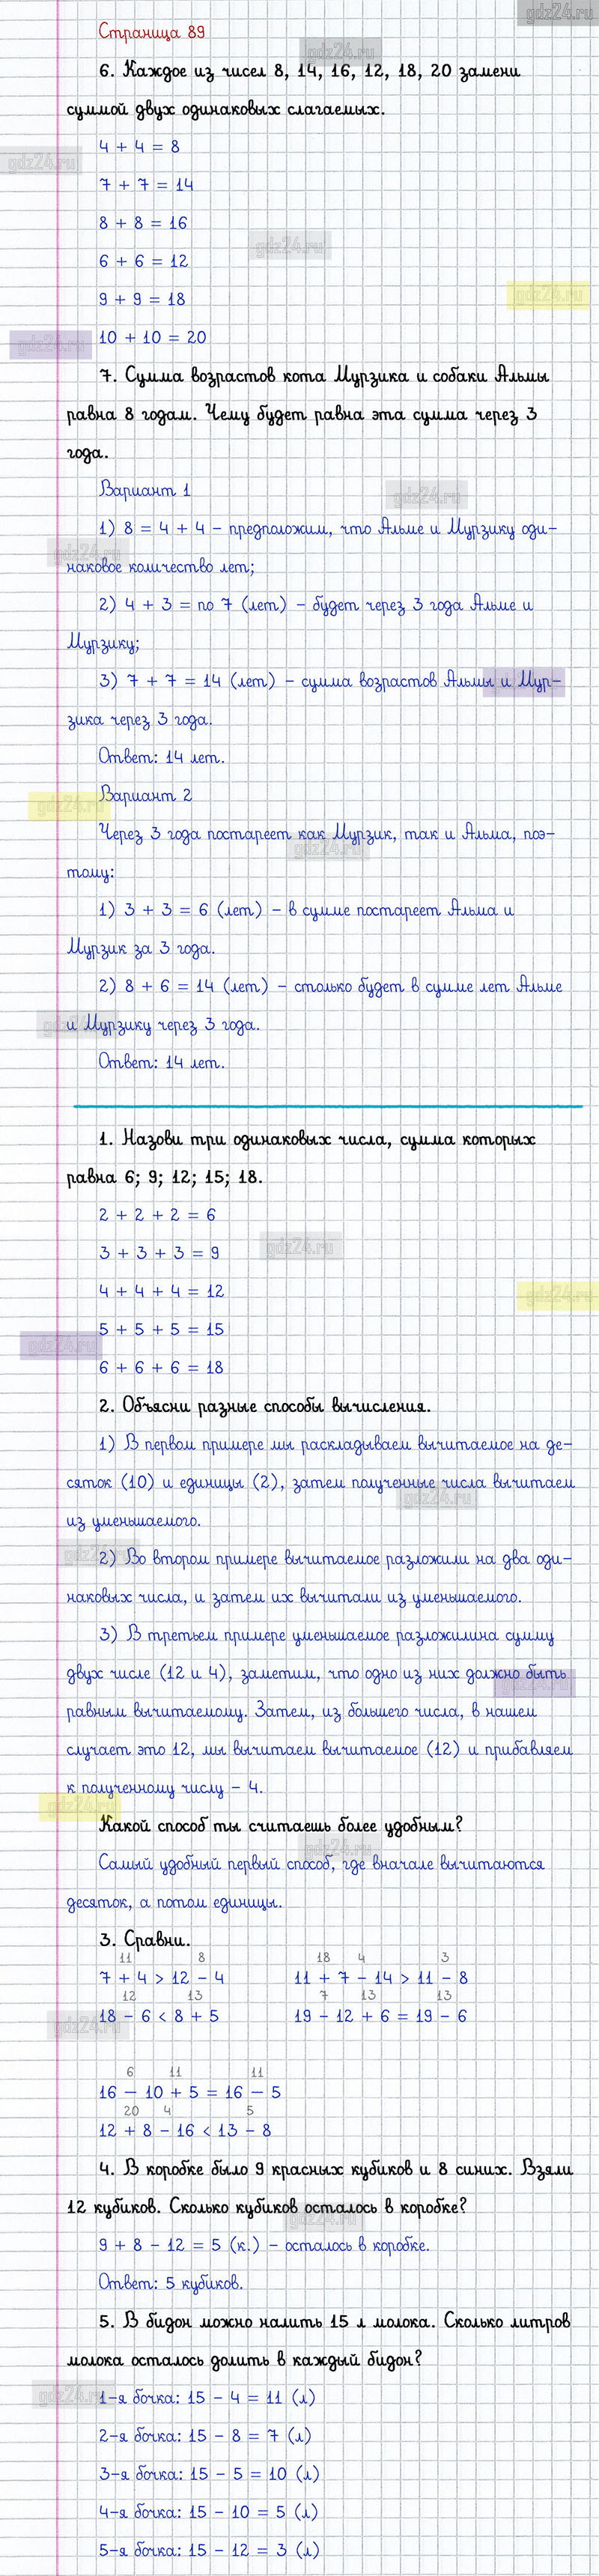 gdz24.ru
Страница 89
gdz24.ru
6. Каждое из чисел 8, 14, 16, 12, 18, 20 замени
суммой двух одинаковых слагаемых.
4 + 4 = 8
gdz24.ru
7 + 7 = 14
8 + 8 = 16
gdz24.ru
6 + 6 = 12
gdz24.ru
9 + 9 = 18
10 + 10 = 20
gdz24.ru
7. Сумма возрастов кота Мурзика и собаки Альмы
равна 8 годам. Чему будет равна эта сумма через 3
года.
Вариант 1
gdz24.ru
1) 8 = 4 + 4 – предположим, что Альме и Мурзику оди-
gdz24.ru
наковое количество лет;
2) 4 + 3 = по 7 (лет) – будет через 3 года Альме и
Мурзику;
3) 7 + 7 = 14 (лет) – сумма возрастов Альмы и Мур-
gdz24.ru
зика через 3 года.
Ответ: 14 лет.
Вариант 2
gdz24.ru
Через 3 года постареет как Мурзик, так и Альма, поэ-
gdz24.ru
тому:
1) 3 + 3 = 6 (лет) – в сумме постареет Альма и
Мурзик за 3 года.
2) 8 + 6 = 14 (лет) – столько будет в сумме лет Альме
gdz24.ru
и Мурзику через 3 года.
Ответ: 14 лет.
1. Назови три одинаковых числа, сумма которых
равна 6; 9; 12; 15; 18.
2 + 2 + 2 = 6
gdz24.ru
3 + 3 + 3 = 9
4 + 4 + 4 = 12
gdz24.ru
5 + 5 + 5 = 15
gdz24.ru
6 + 6 + 6 = 18
2. Объясни разные способы вычисления.
1) В первом примере мы раскладываем вычитаемое на де-
сяток (10) и единицы (2), затем полученные числа вычитаем
gdz24.ru
из уменьшаемого.
gdz24.ru
2) Во втором примере вычитаемое разложили на два оди-
наковых числа, и затем их вычитали из уменьшаемого.
3) В третьем примере уменьшаемое разложилина сумму
двух числе (12 и 4), заметим, что одно из них должно быть
gdz24.ru
равным вычитаемому. Затем, из большего числа, в нашем
случает это 12, мы вычитаем вычитаемое (12) и прибавляем
к полученному числу – 4.
gdz24.ru
Какой способ ты считаешь более удобным?
gdz24.ru
Самый удобный первый способ, где вначале вычитаются
десяток, а потом единицы.
3. Сравни.
11 8 18 4 3
7 + 4 > 12 – 4 11 + 7 – 14 > 11 – 8
12 13 7 13 13
18 – 6 < 8 + 5 19 – 12 + 6 = 19 – 6
gdz24.ru
6 11 11
16 – 10 + 5 = 16 – 5
20 4 5
12 + 8 – 16 < 13 – 8
4. В коробке было 9 красных кубиков и 8 синих. Взяли
12 кубиков. Сколько кубиков осталось в коробке?
gdz24.ru
9 + 8 – 12 = 5 (к.) – осталось в коробке.
Ответ: 5 кубиков.
5. В бидон можно налить 15 л молока. Сколько литров
молока осталось долить в каждый бидон?
gdz24.ru
1-я бочка: 15 – 4 = 11 (л)
2-я бочка: 15 – 8 = 7 (л)
3-я бочка: 15 – 5 = 10 (л)
4-я бочка: 15 – 10 = 5 (л)
5-я бочка: 15 – 12 = 3 (л)